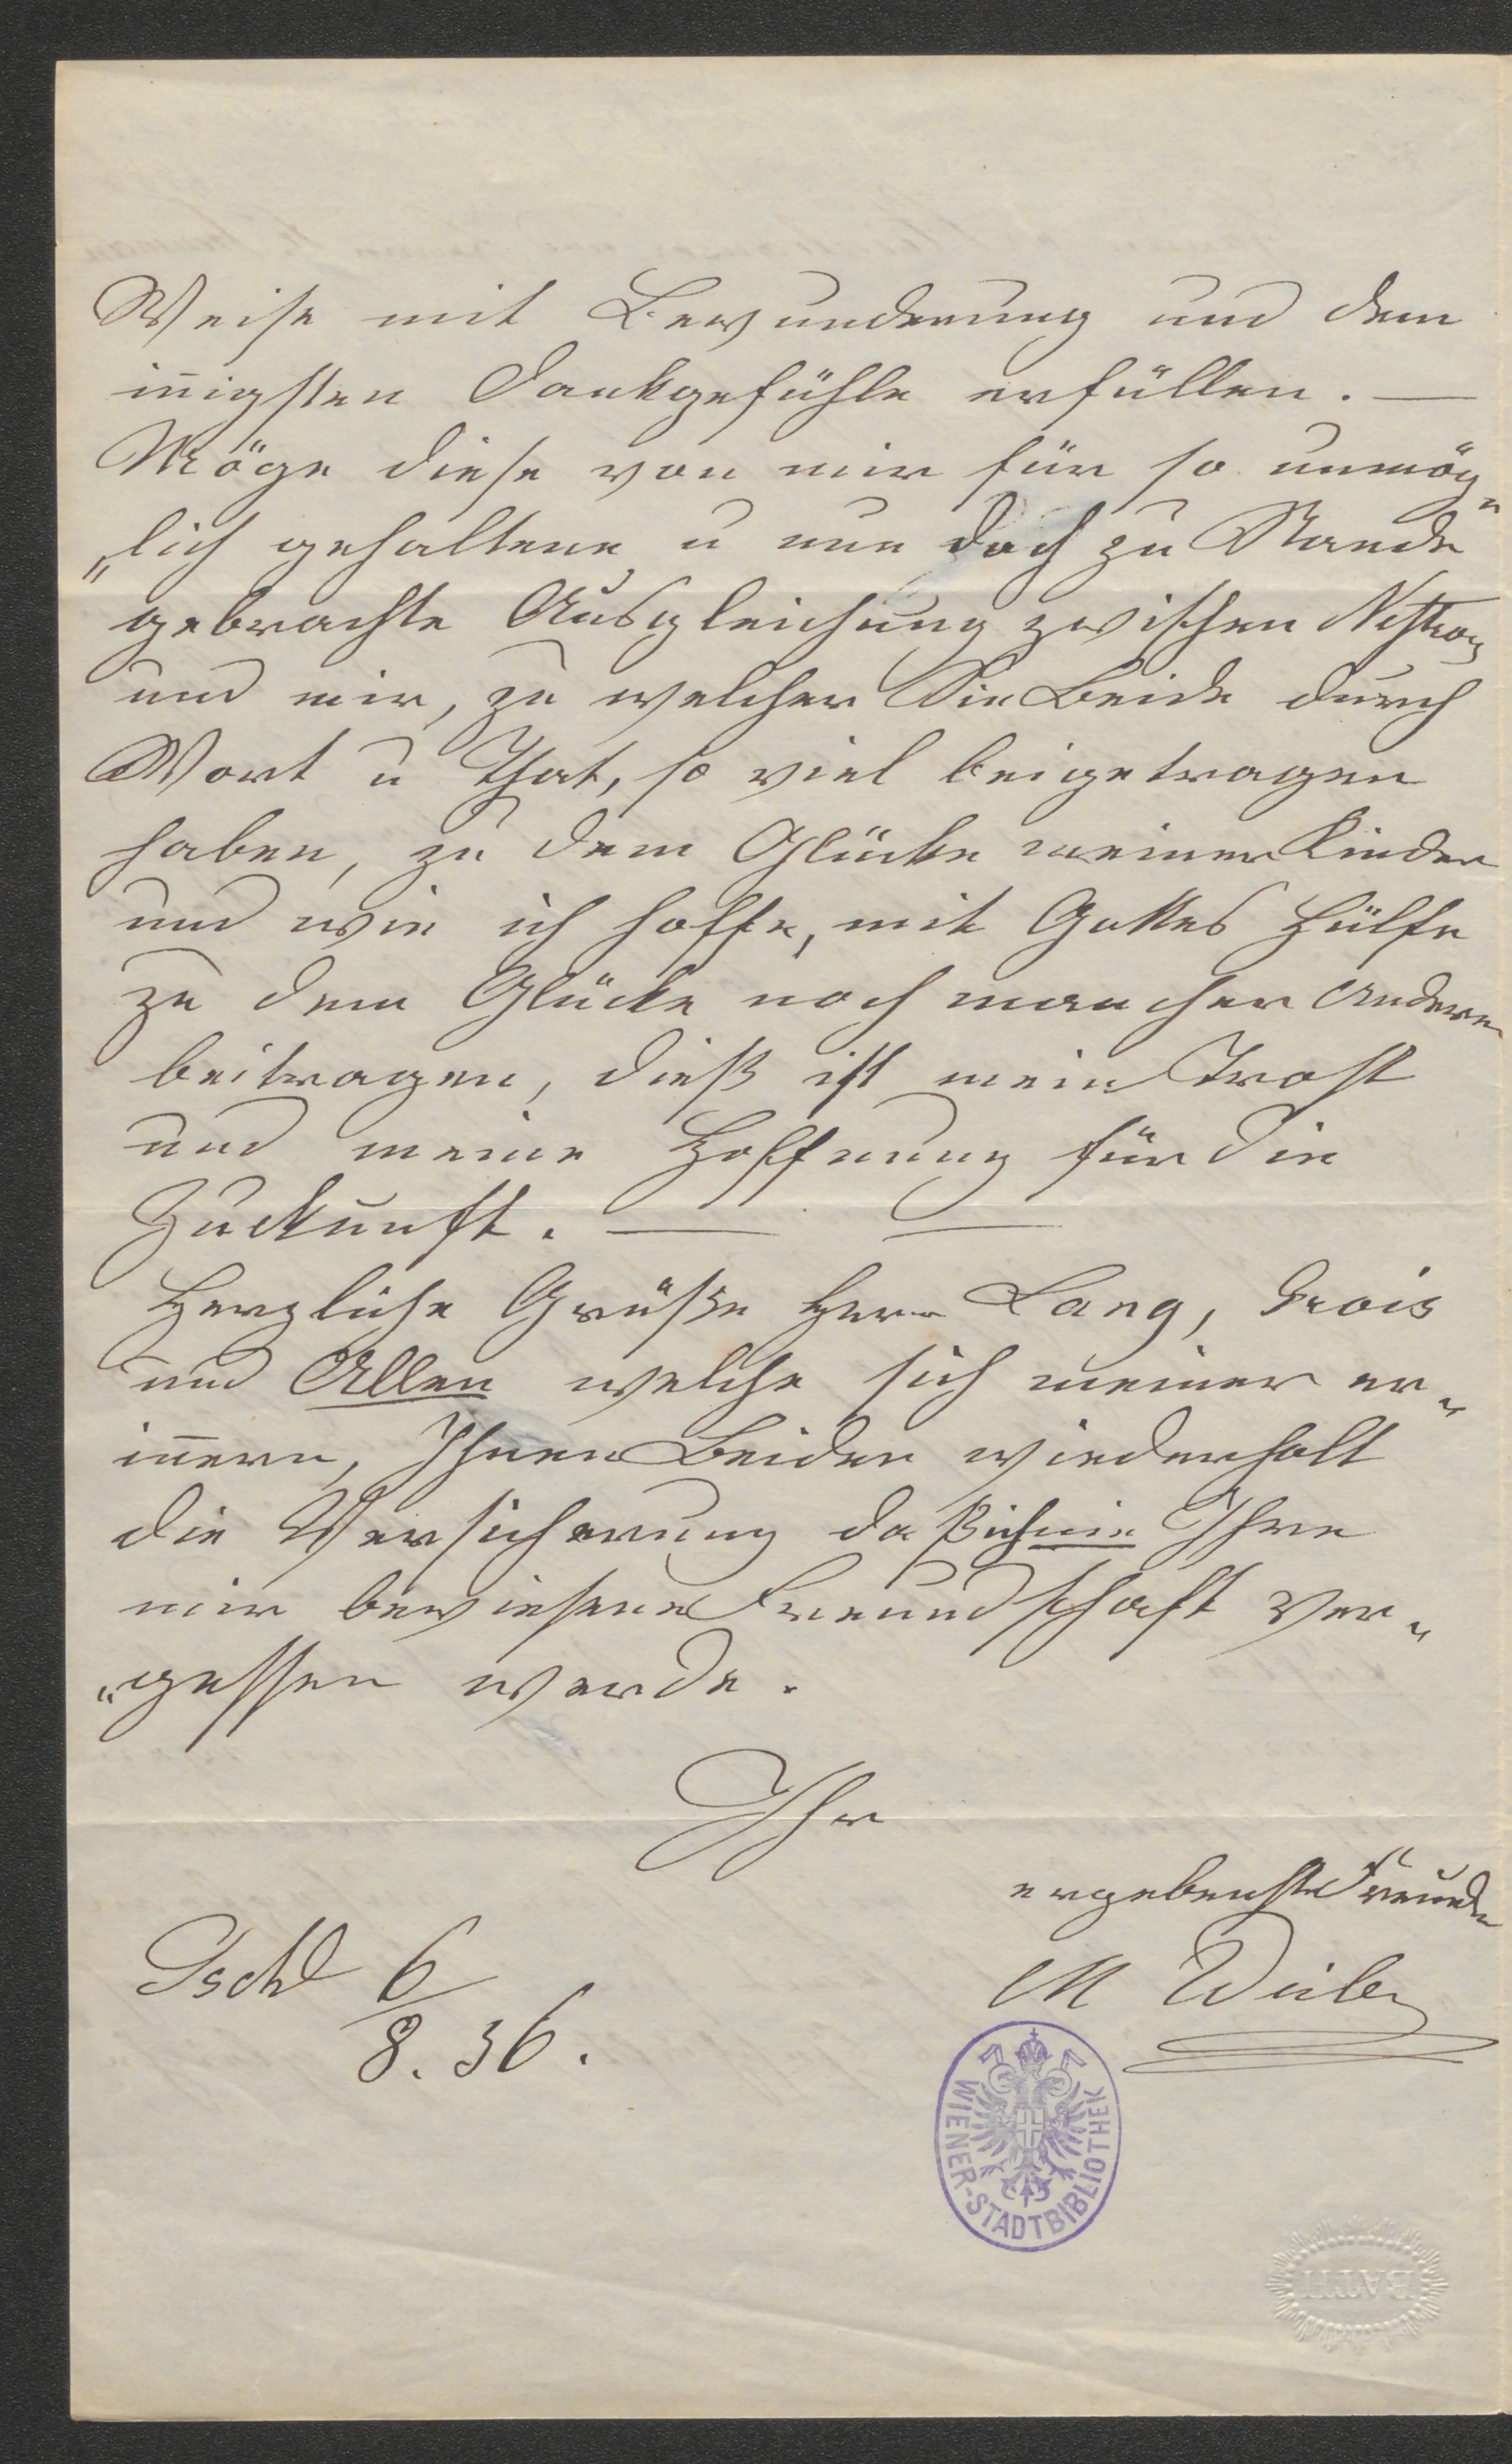 Weise mit Bewunderung und dem
in̄igsten Dankgefühle erfüllen. —
Möge diese von mir für so unmög„
„lich gehaltene u nun doch zu Stande
gebrachte Ausgleichung zwischen Nestroy
und mir, zu welcher Sie Beide durch
Wort u That, so viel beigetragen
haben, zu dem Glücke meiner Kinder
und wie ich hoffe, mit Gottes Hülfe
zu dem Glücke noch mancher Anderer
beitragen, dieß ist mein Trost
und meine Hoffnung für die
Zuckunft. — —
Herzliche Grüße Herrn Lang, Grois
und Allen welche sich meiner er„
in̄ern, Ihnen Beiden wiederholt
die Versicherung daß ich nie Ihre
mir bewiesene Freundschaft ver„
„gessen werde.
Ihr
ergebenste Freundin
M Weiler
Ischl 6
8. 56.
WIENER-STADTBIBLIOTHEK
BATH